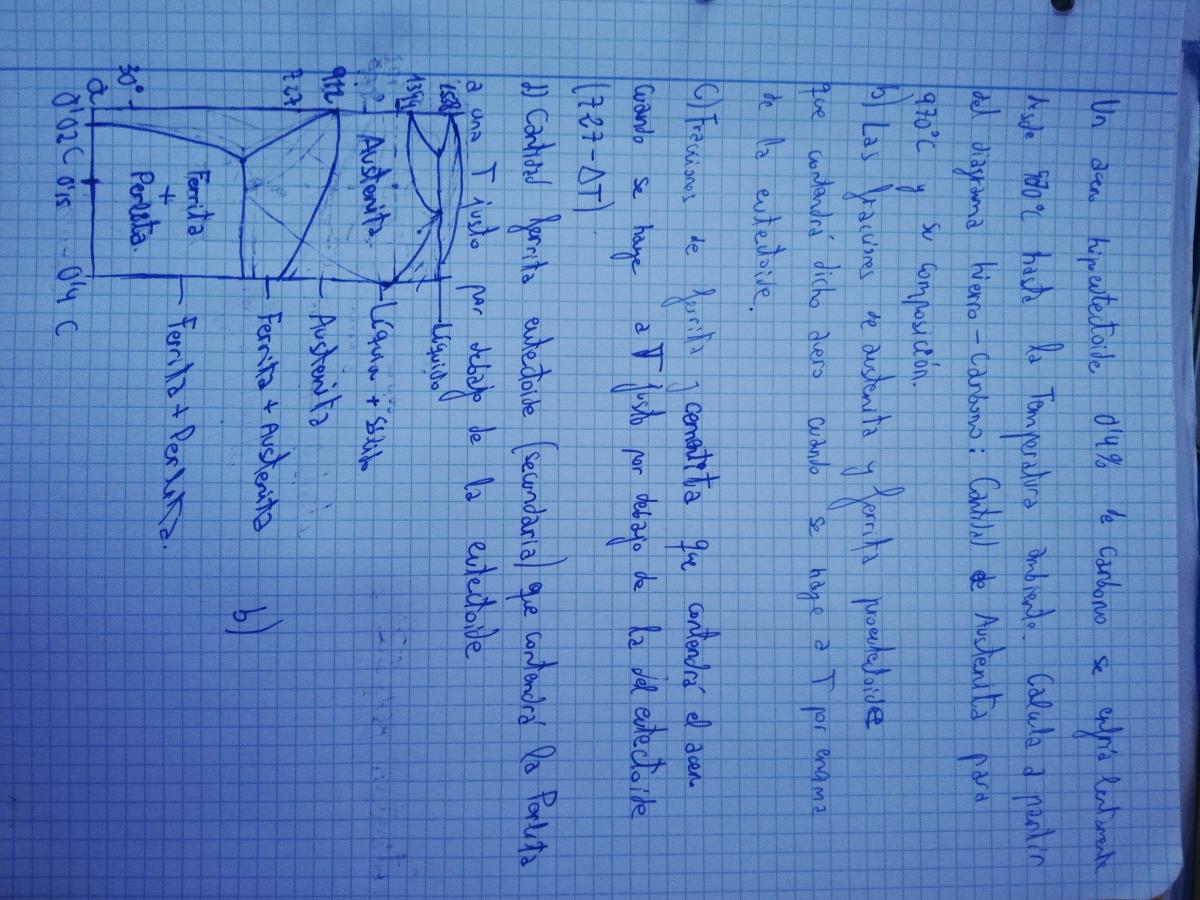 Un acero hipoeutectoide 0'4% de carbono se enfría lentamente
desde 970°C hasta la Temperatura ambiente. Calcula a partir
del diagrama hierro - Carbono: Cantidad de Austenita para
970°C y su composición.
b) Las fracciones de austenita y ferrita proeutectoide
que contendrá dicho acero cuando se haye a T por encima
de la eutectoide.
C) Fracciones de ferrita y cementita que contendrá el acero
cuando se haye a T justo por debajo de la del eutectoide
(727-ΔT)
d) Cantidad ferrita eutectoide (secundaria) que contendrá la Perlita
a una T justo por debajo de la eutectoide
1538
Líquido
1394
Líquido + Sólido
Austenita
Austenita
912
Ferrita + Austenita
727
Ferrita
+
Perlita
Ferrita + Perlita.
30°
0'02 C 0'15 0'4 C
b)